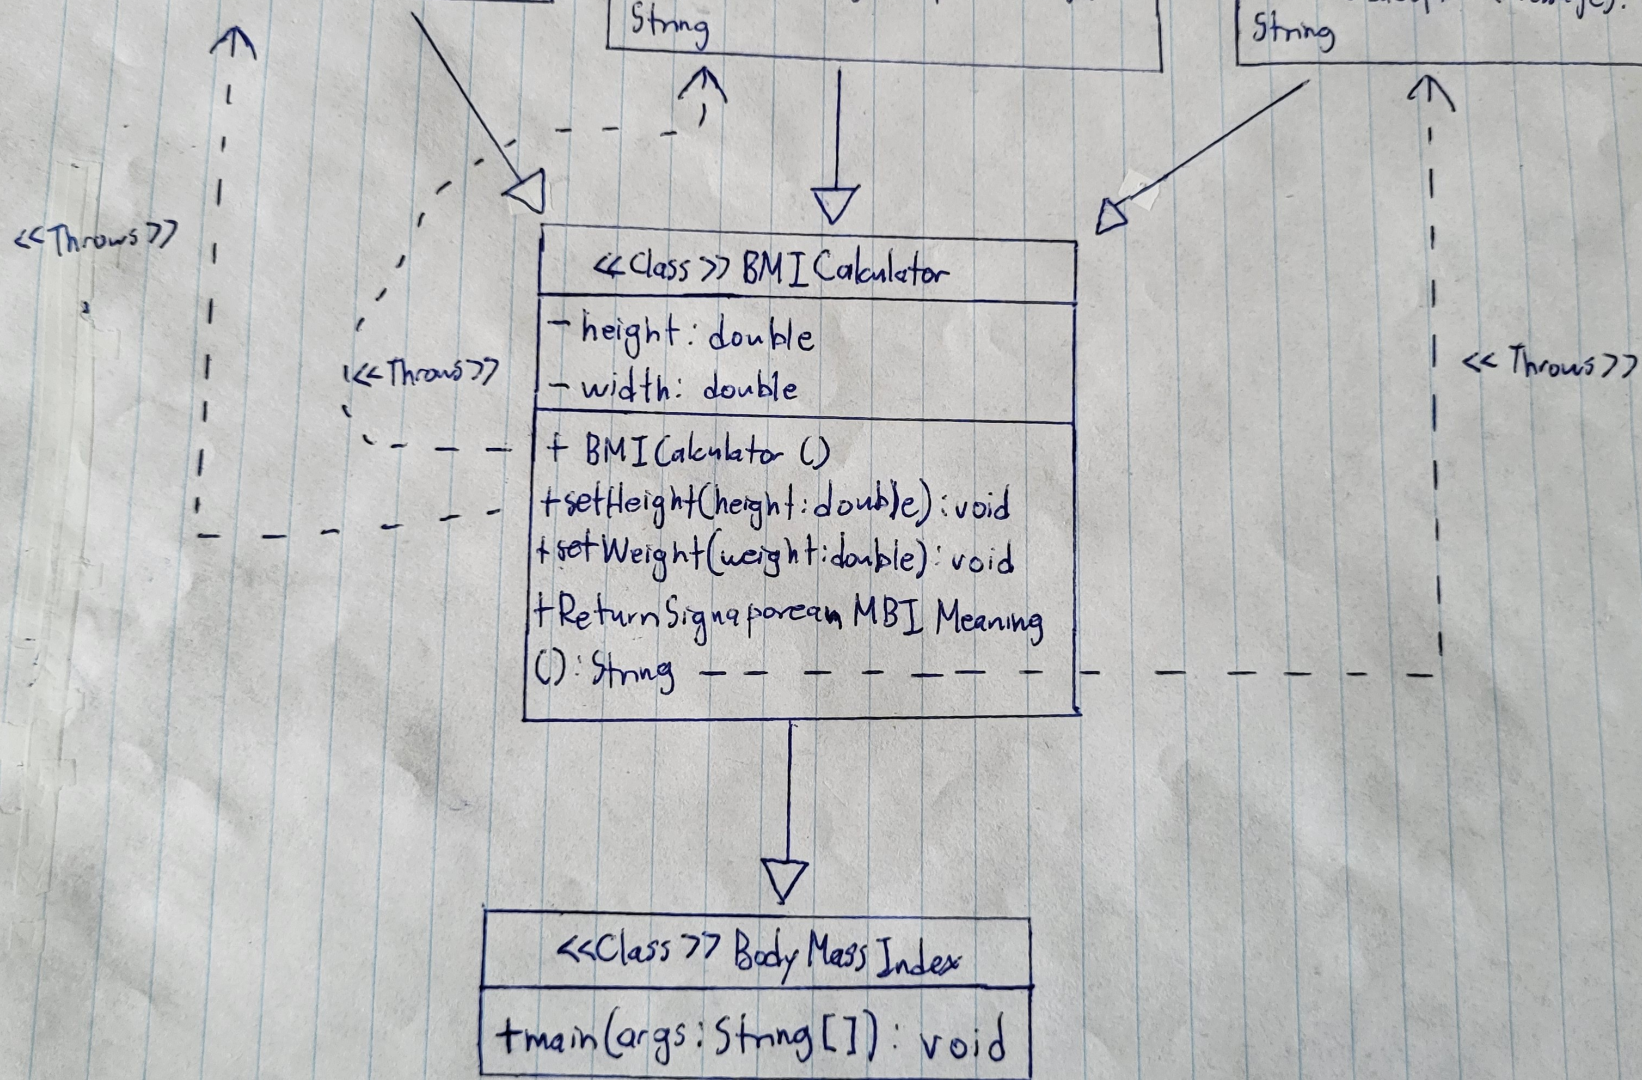 String
String
<<Throws>>
<<Class>> BMICalculator
- height: double
- width: double
<<Throws>>
<<Throws>>
+ BMICalculator ()
+setHeight(height:double):void
+setWeight(weight:double): void
+ReturnSignaporean MBI Meaning
(): String
<<Class>> Body Mass Index
+main(args: String[]): void